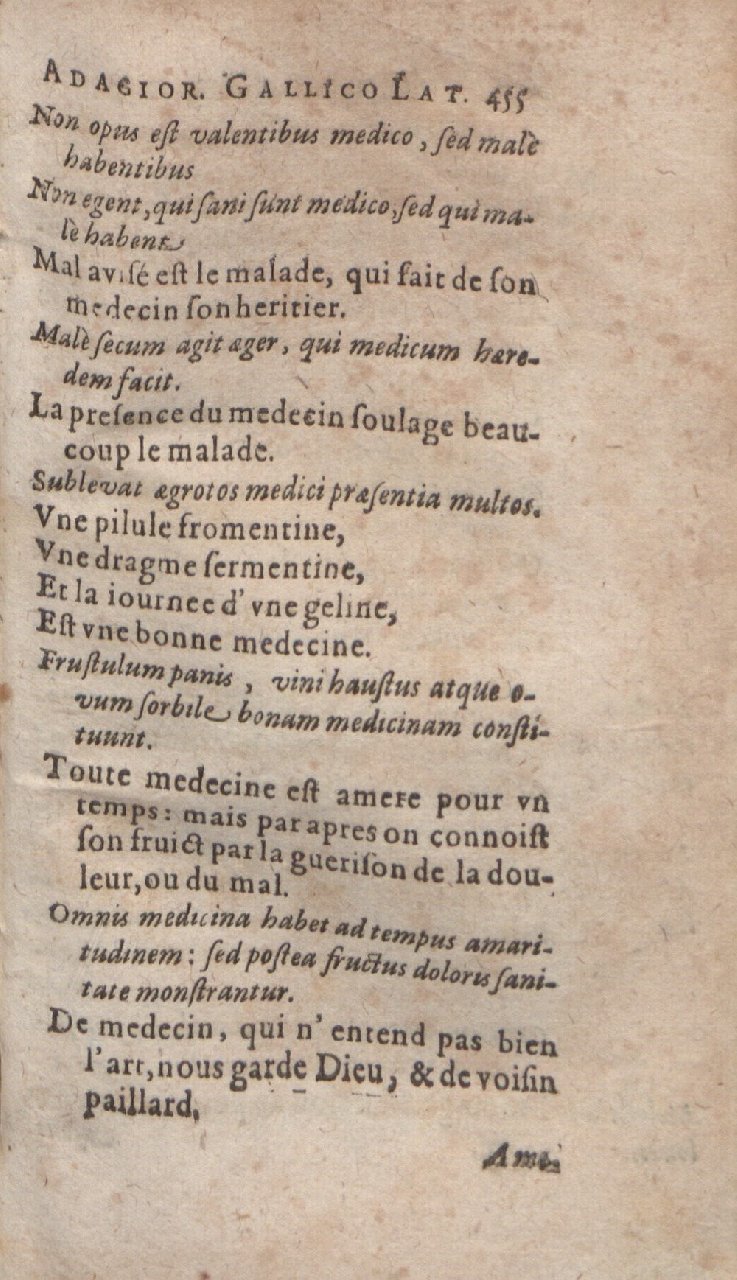 ADAGIOR. GALLICO LAT. 455
Non opus eſt valentibus medico, ſed malè
habentibus
Non egent, qui ſani ſunt medico, ſed qui ma-
lè habent
Mal aviſé eſt le malade, qui fait de ſon
medecin ſon heritier.
Malè ſecum agit æger, qui medicum hære-
dem facit.
La preſence du medecin ſoulage beau-
coup le malade.
Sublevat ægrotos medici præſentia multos.
Vne pilule fromentine,
Vne dragme ſermentine,
Et la iournee d' vne geline,
Eſt vne bonne medecine.
Fruſtulum panis, vini hauſtus atque o-
vum ſorbile bonam medicinam conſti-
tuunt.
Toute medecine eſt amere pour vn
temps: mais par apres on connoiſt
ſon fruict par la gueriſon de la dou-
leur, ou du mal.
Omnis medicina habet ad tempus amari-
tudinem: ſed poſtea fructus doloris ſani-
tate monſtrantur.
De medecin, qui n' entend pas bien
l'art, nous garde Dieu, & de voiſin
paillard.
Ame.